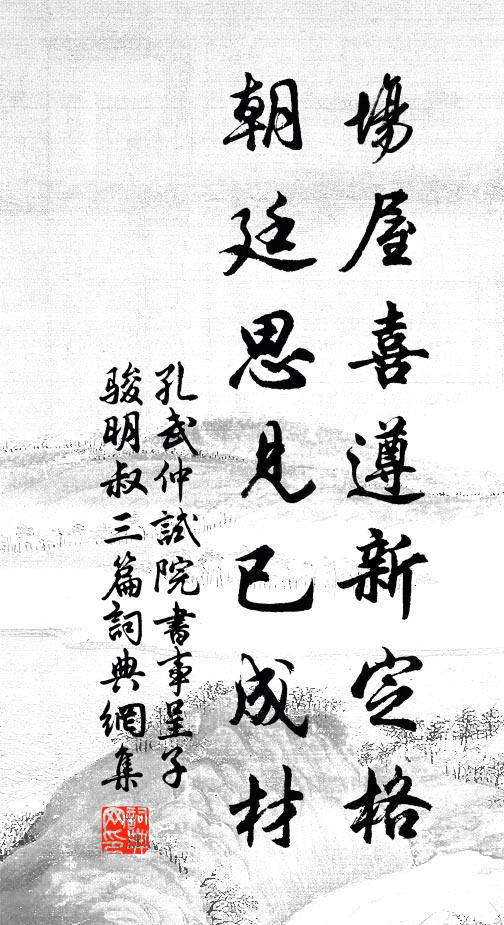 場屋喜遵新定格
朝廷思見已成材
孔武仲試院書事呈子
駿明叔三篇詞典網集